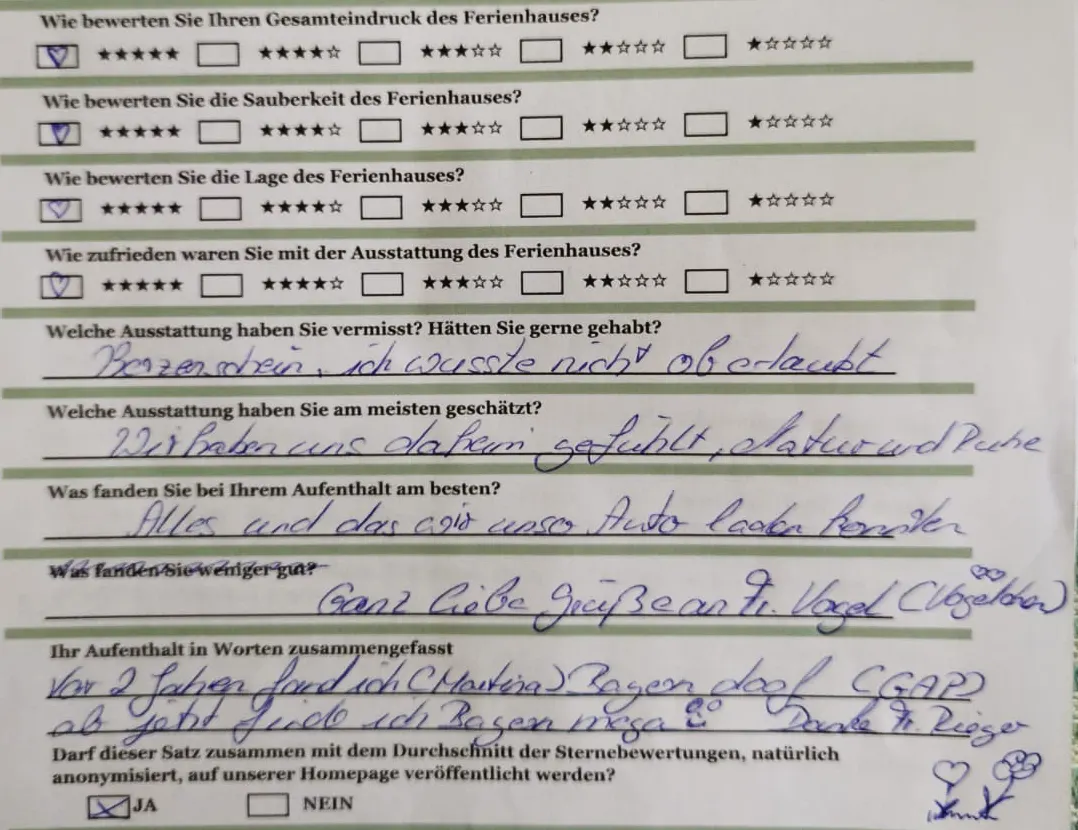 Wie bewerten Sie Ihren Gesamteindruck des Ferienhauses?
★★★★★ ★★★★☆ ★★★☆☆ ★★☆☆☆ ★☆☆☆☆
Wie bewerten Sie die Sauberkeit des Ferienhauses?
★★★★★ ★★★★☆ ★★★☆☆ ★★☆☆☆ ★☆☆☆☆
Wie bewerten Sie die Lage des Ferienhauses?
★★★★★ ★★★★☆ ★★★☆☆ ★★☆☆☆ ★☆☆☆☆
Wie zufrieden waren Sie mit der Ausstattung des Ferienhauses?
★★★★★ ★★★★☆ ★★★☆☆ ★★☆☆☆ ★☆☆☆☆
Welche Ausstattung haben Sie vermisst? Hätten Sie gerne gehabt?
ich wusste nicht ob erlaubt
Welche Ausstattung haben Sie am meisten geschätzt?
Wir haben uns daheim gefühlt, Natur und Ruhe
Was fanden Sie bei Ihrem Aufenthalt am besten?
Alles und das wir unser Auto laden konnten
Was fanden Sie weniger gut?
Ganz liebe Grüße an Fr. Vogel (Vögelchen)
Ihr Aufenthalt in Worten zusammengefasst
Vor 2 Jahren fand ich (Martina) Bayern doof (GAP)
ab jetzt finde ich Bayern mega Danke Fr. Rieger
Darf dieser Satz zusammen mit dem Durchschnitt der Sternebewertungen, natürlich
anonymisiert, auf unserer Homepage veröffentlicht werden?
JA NEIN